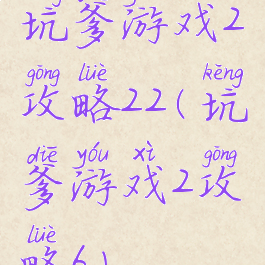 坑爹游戏2
gōng lüè kēng
攻略22(坑
diē yóu xì gōng
爹游戏2攻
lüè
略6)